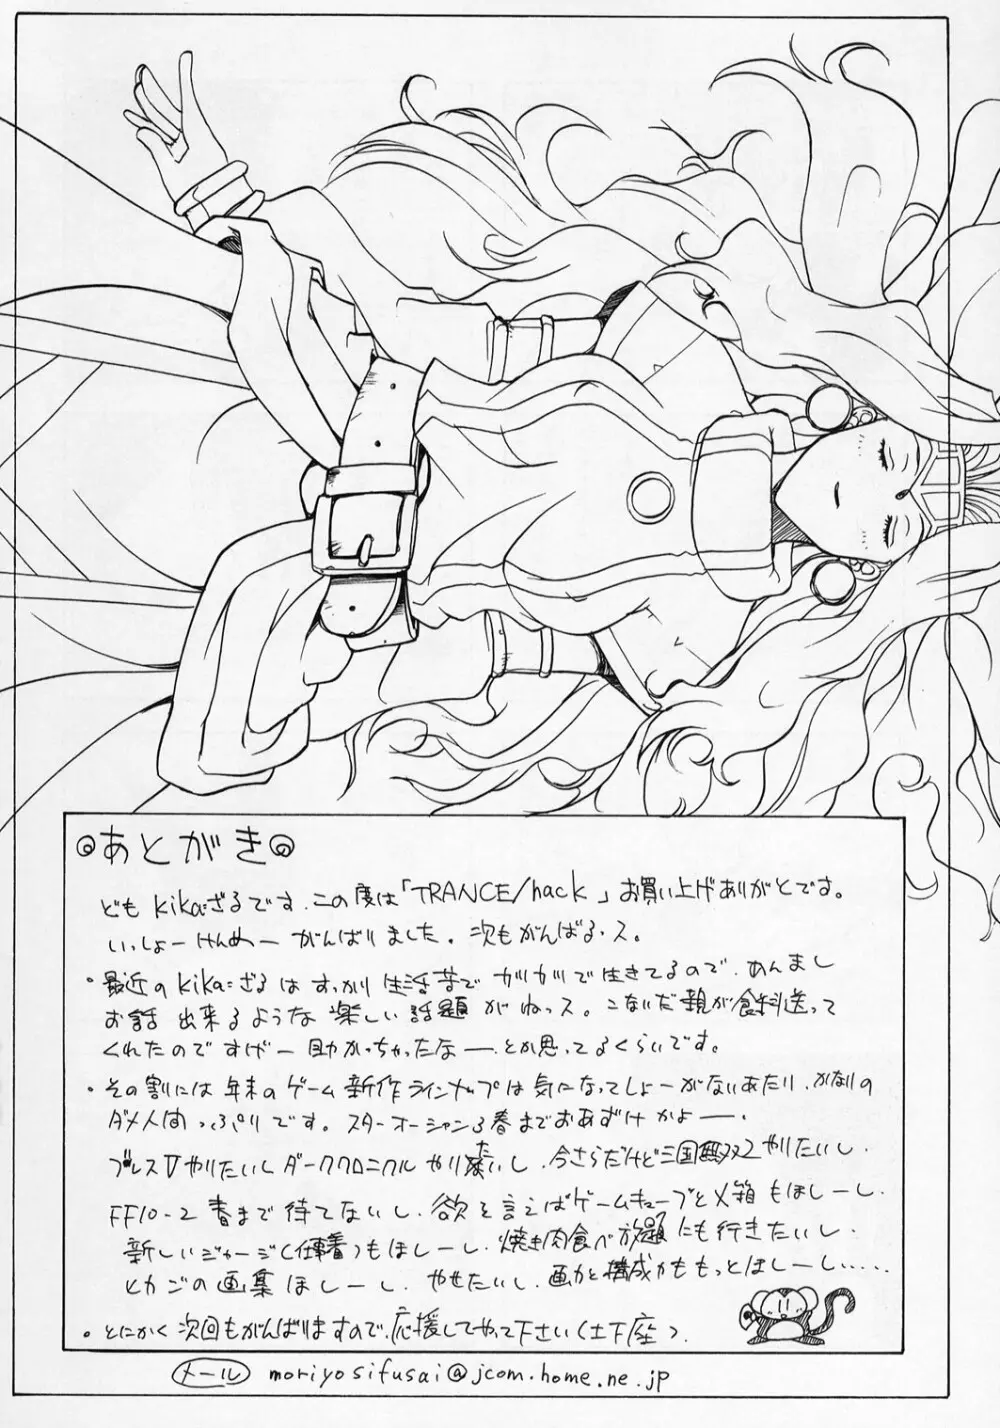 ◎あとがき◎
ども kika=ざるです。この度は「TRANCE/hack」お買い上げありがとです。
いっしょーけんめーがんばりました。次もがんばるっス。
・最近のkika=ざるはすっかり生活苦でガリガリで生きてるので、あんまし
お話出来るような楽しい話題がねっス。こないだ親が食料送って
くれたのですげー助かっちゃったなーーとか思ってるくらいです。
・その割には年末のゲーム新作ラインナップは気になってしょーがないあたり、かなりの
ダメ人間っぷりです。スターオーシャン3春までおあずけかよーー、
ブレスⅤやりたいしダーククロニクルやりたいし、今さらだけど三国無双2やりたいし、
FF10-2春まで待てないし、欲を言えばゲームキューブと✕箱もほしーし、
新しいジャージ(仕事着)もほしーし、焼き肉食べ放題にも行きたいし、
とかごの画集ほしーし、やせたいし、画力と構成力ももっとほしーし……
・とにかく次回もがんばりますので、応援してやって下さい(土下座)。
メール moriyosifusai@jcom.home.ne.jp